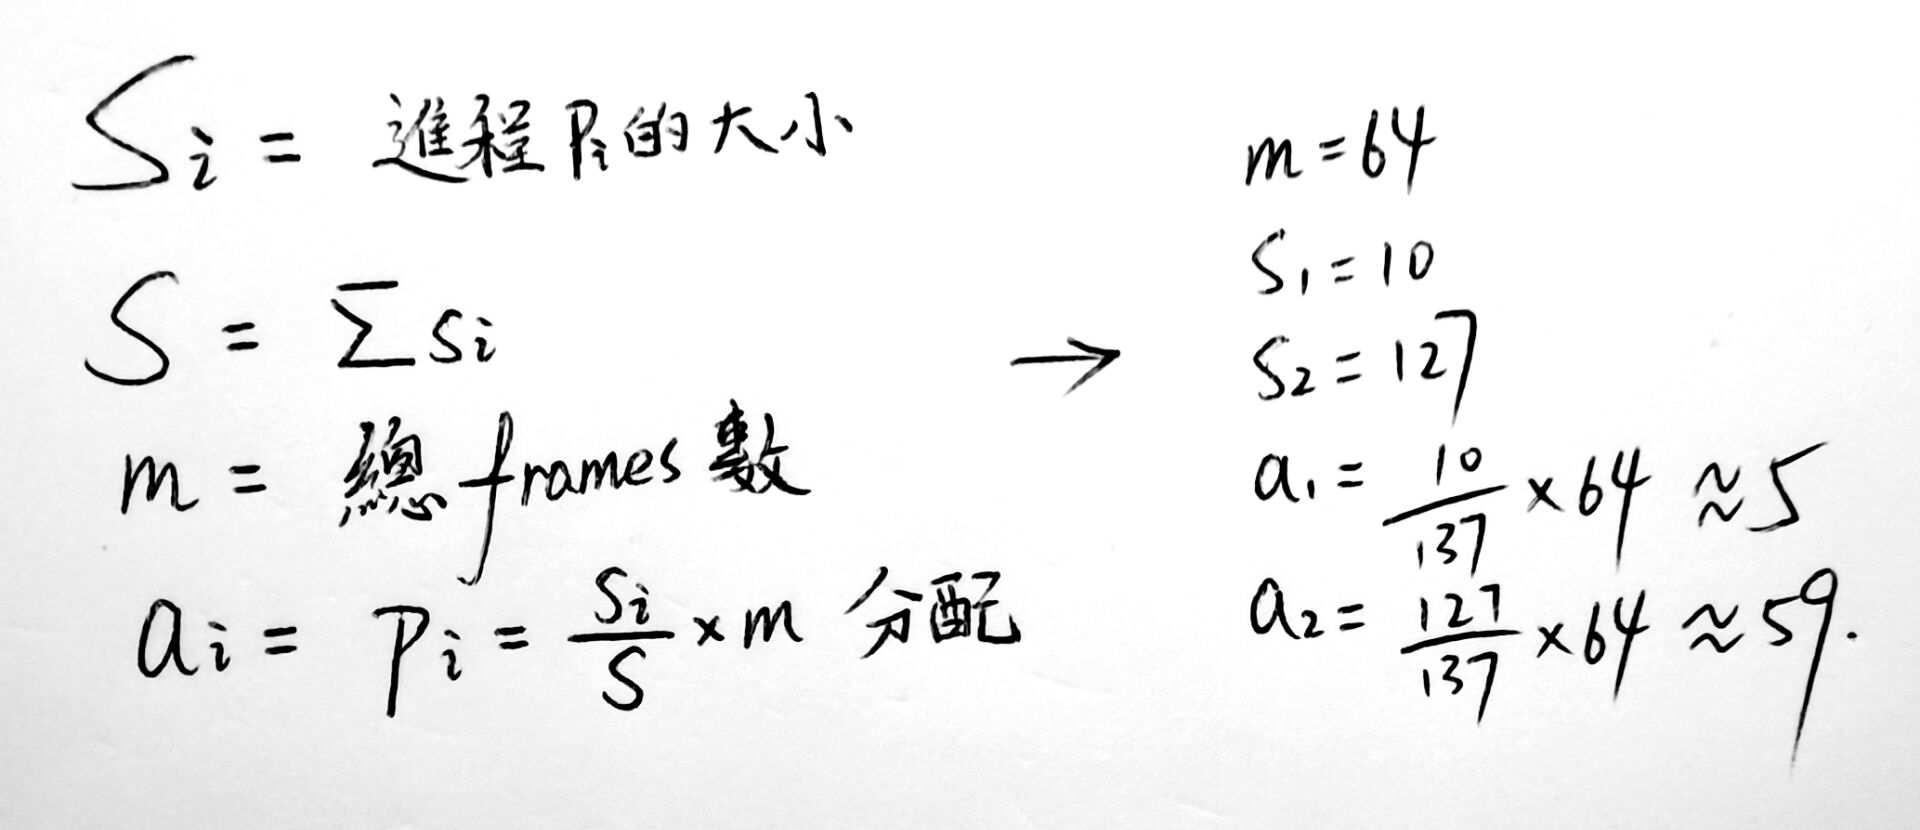 Si = 進程Pi的大小
S = ∑si
m = 總frames數
ai = Pi = Si/S × m 分配
→
m = 64
S1 = 10
S2 = 127
a1 = 10/137 × 64 ≈ 5
a2 = 127/137 × 64 ≈ 59.